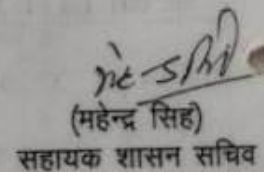 (महेन्द्र सिंह)
सहायक शासन सचिव